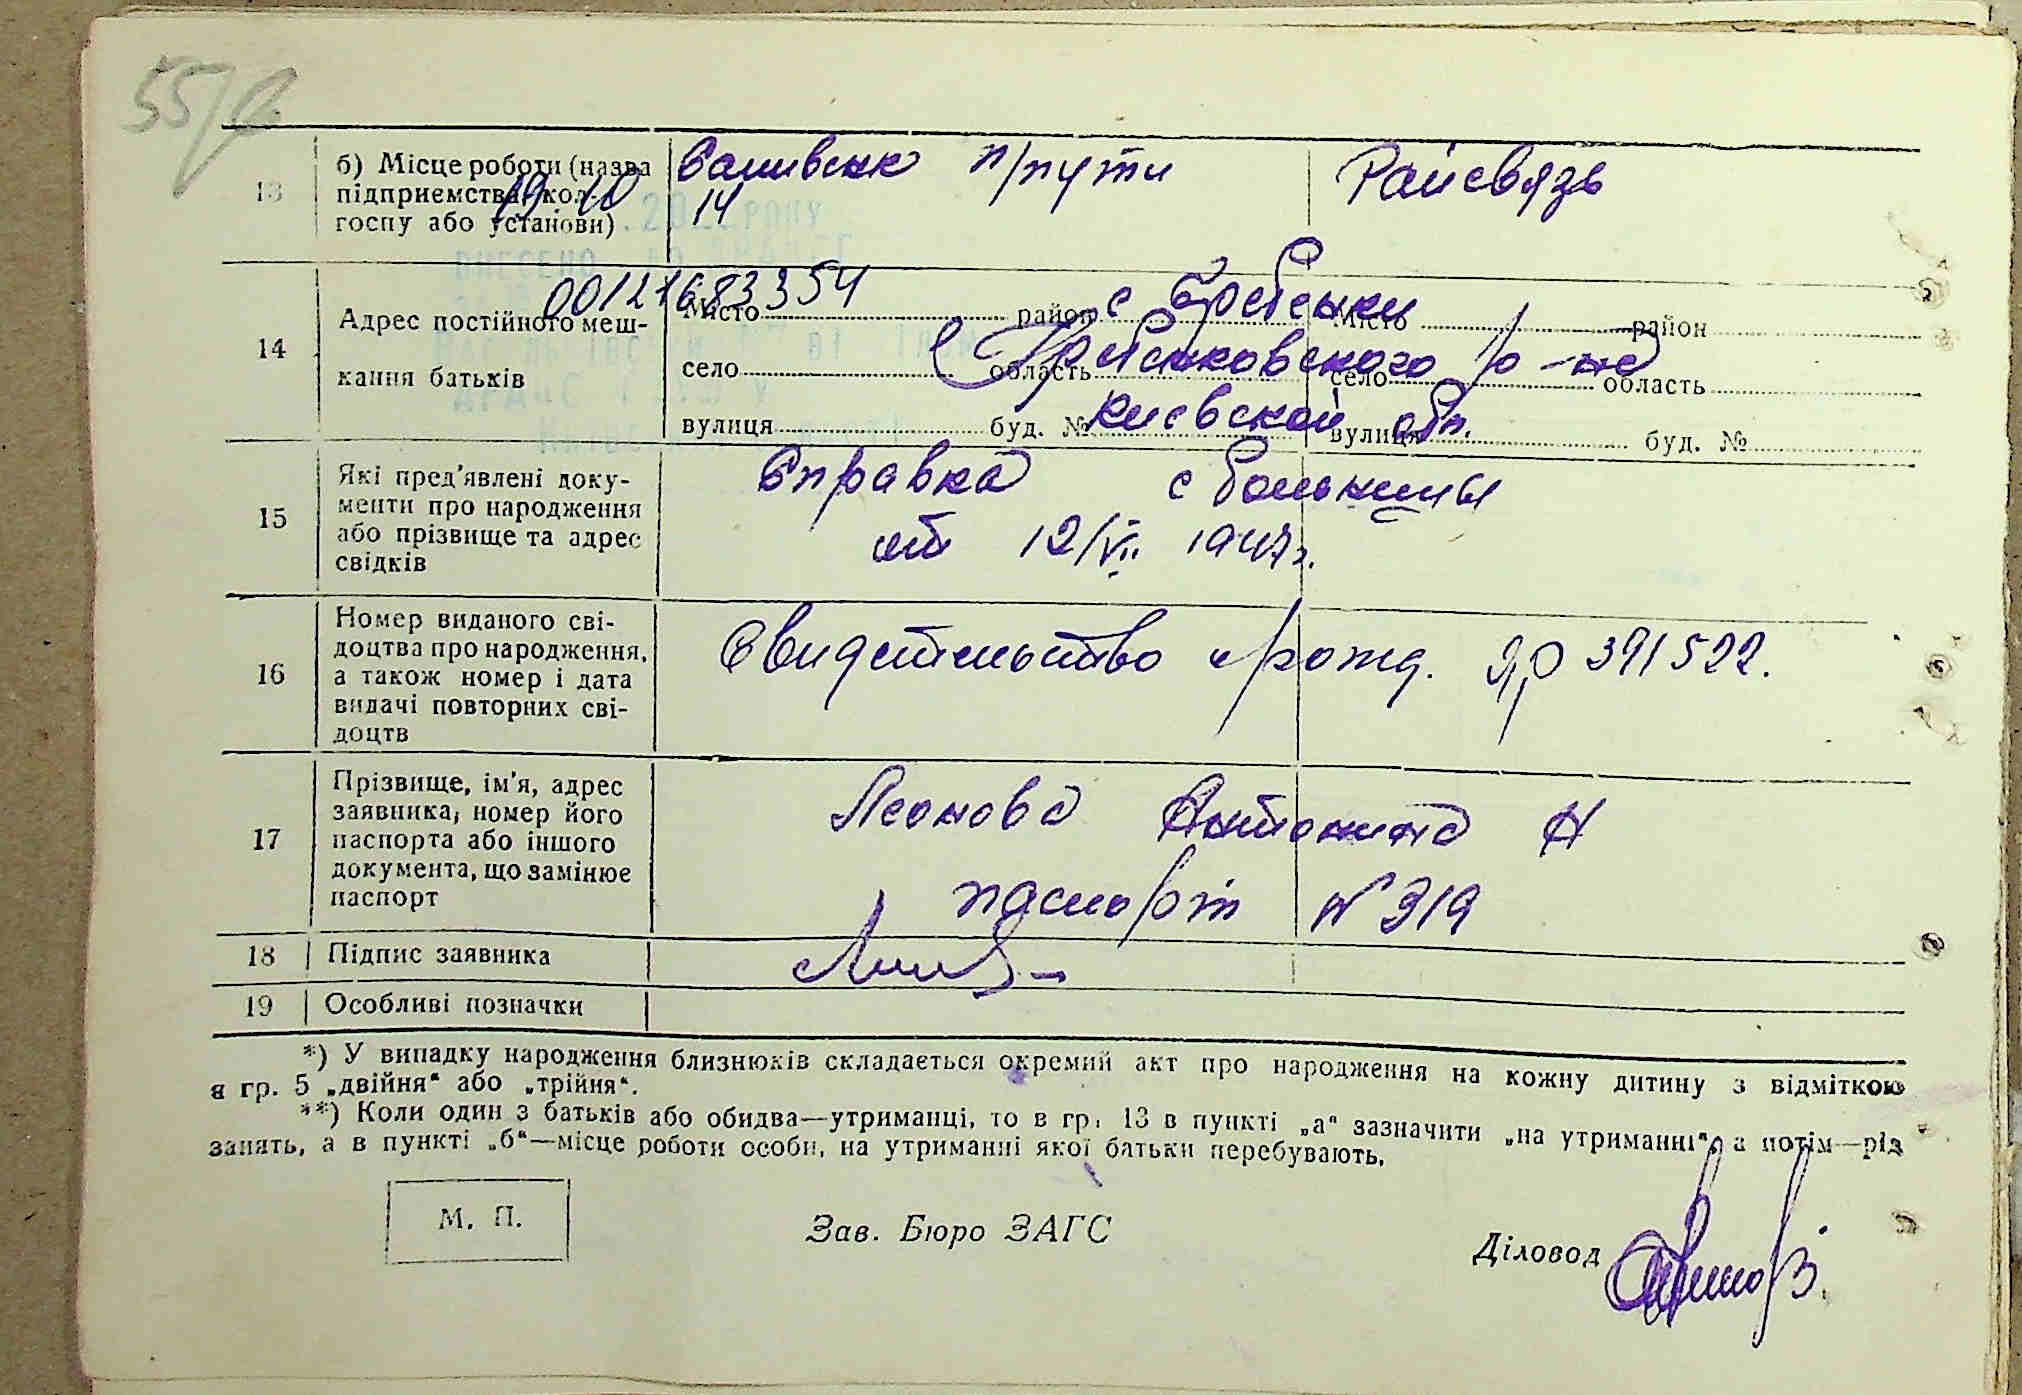 55/
13 б) Місце роботи (назва підприємства, кол- госпу або установи)
Райсвязь
19 10 20 року 14
ВНЕСЕНО
00121683354
14 Адрес постійного меш- кання батьків
Місто район с Гребенки Місто район
село область Гребенковского р-на село область
вулиця буд. № Киевской обл. вулиця буд. №
15 Які пред’явлені доку- менти про народження або прізвище та адрес свідків
Справка с больницы
от 12/VII 1947г.
16 Номер виданого сві- доцтва про народження, а також номер і дата видачі повторних сві- доцтв
Свидетельство о рожд. ЯР 391522.
17 Прізвище, ім’я, адрес заявника, номер його паспорта або іншого документа, що замінює паспорт
Леонова Антонина Н
паспорт № 319
18 Підпис заявника
19 Особливі позначки
*) У випадку народження близнюків складається окремий акт про народження на кожну дитину з відміткою
в гр. 5 „двійня“ або „трійня“.
**) Коли один з батьків або обидва—утриманці, то в гр. 13 в пункті „а“ зазначити „на утриманні“, а потім—рід
занять, а в пункті „б“—місце роботи особи, на утриманні якої батьки перебувають.
М. П.
Зав. Бюро ЗАГС
Діловод